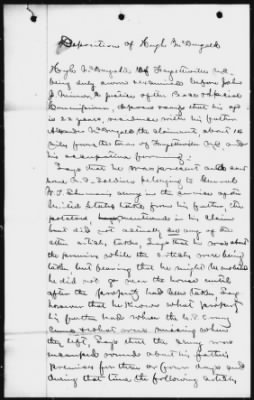 Deposition of Hugh McDugald
Hugh McDugald of Fayetteville N.C.
being duly sworn examined before John
a justice of the Peace & Special
Commissioner, deposes & says that his age
is 22 years, residence with his father
Alexander McDugald, the claimant, about 10
miles from the town of Fayetteville N.C. and
his occupation farming.
Says that he was present and saw
some U.S. soldiers belonging to General
W.T. Sherman's army in the service of the
United States take from his father the
potatoes, mentioned in his claim
but did not actually see any of the
other articles taken, Says that he was about
the premises while the articles were being
taken but fearing that he might be molested
he did not go near the house until
after the property had been taken Says
however that he knows what property
his father had when the U.S. army
came & what was missing when
they left, Says that the army was
encamped around about his father's
premises for three or four days and
during that time the following articles